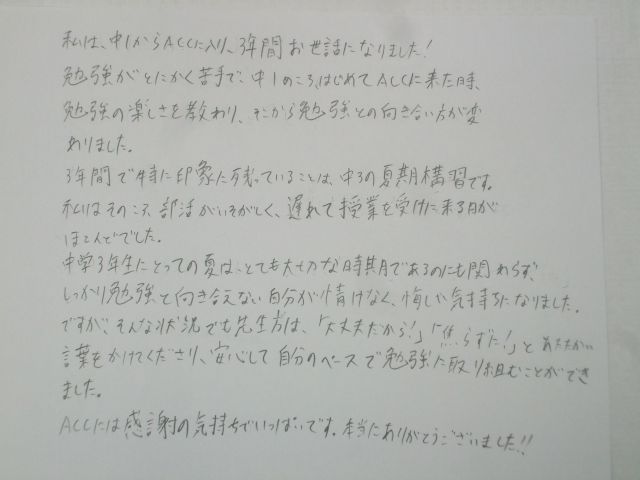 私は、中1からACCに入り、3年間お世話になりました！
勉強がとにかく苦手で、中1のころ、はじめてACCに来た時、
勉強の楽しさを教わり、そこから勉強との向き合い方が変
わりました。
3年間で特に印象に残っていることは、中3の夏期構習です。
私はそのころ、部活がいそがしく、遅れて授業を受けに来る日が
ほとんどでした。
中学3年生にとっての夏は、とても大切な時期であるのにも関わらず、
しっかり勉強と向き合えない自分が情けなく、悔しい気持ちになりました。
ですが、そんな状況でも先生方は、「大丈夫だから！」「焦らずに！」とあたたかい
言葉をかけてくださり、安心して自分のペースで勉強に取り組むことができ
ました。
ACCには感謝の気持ちでいっぱいです。本当にありがとうございました!!